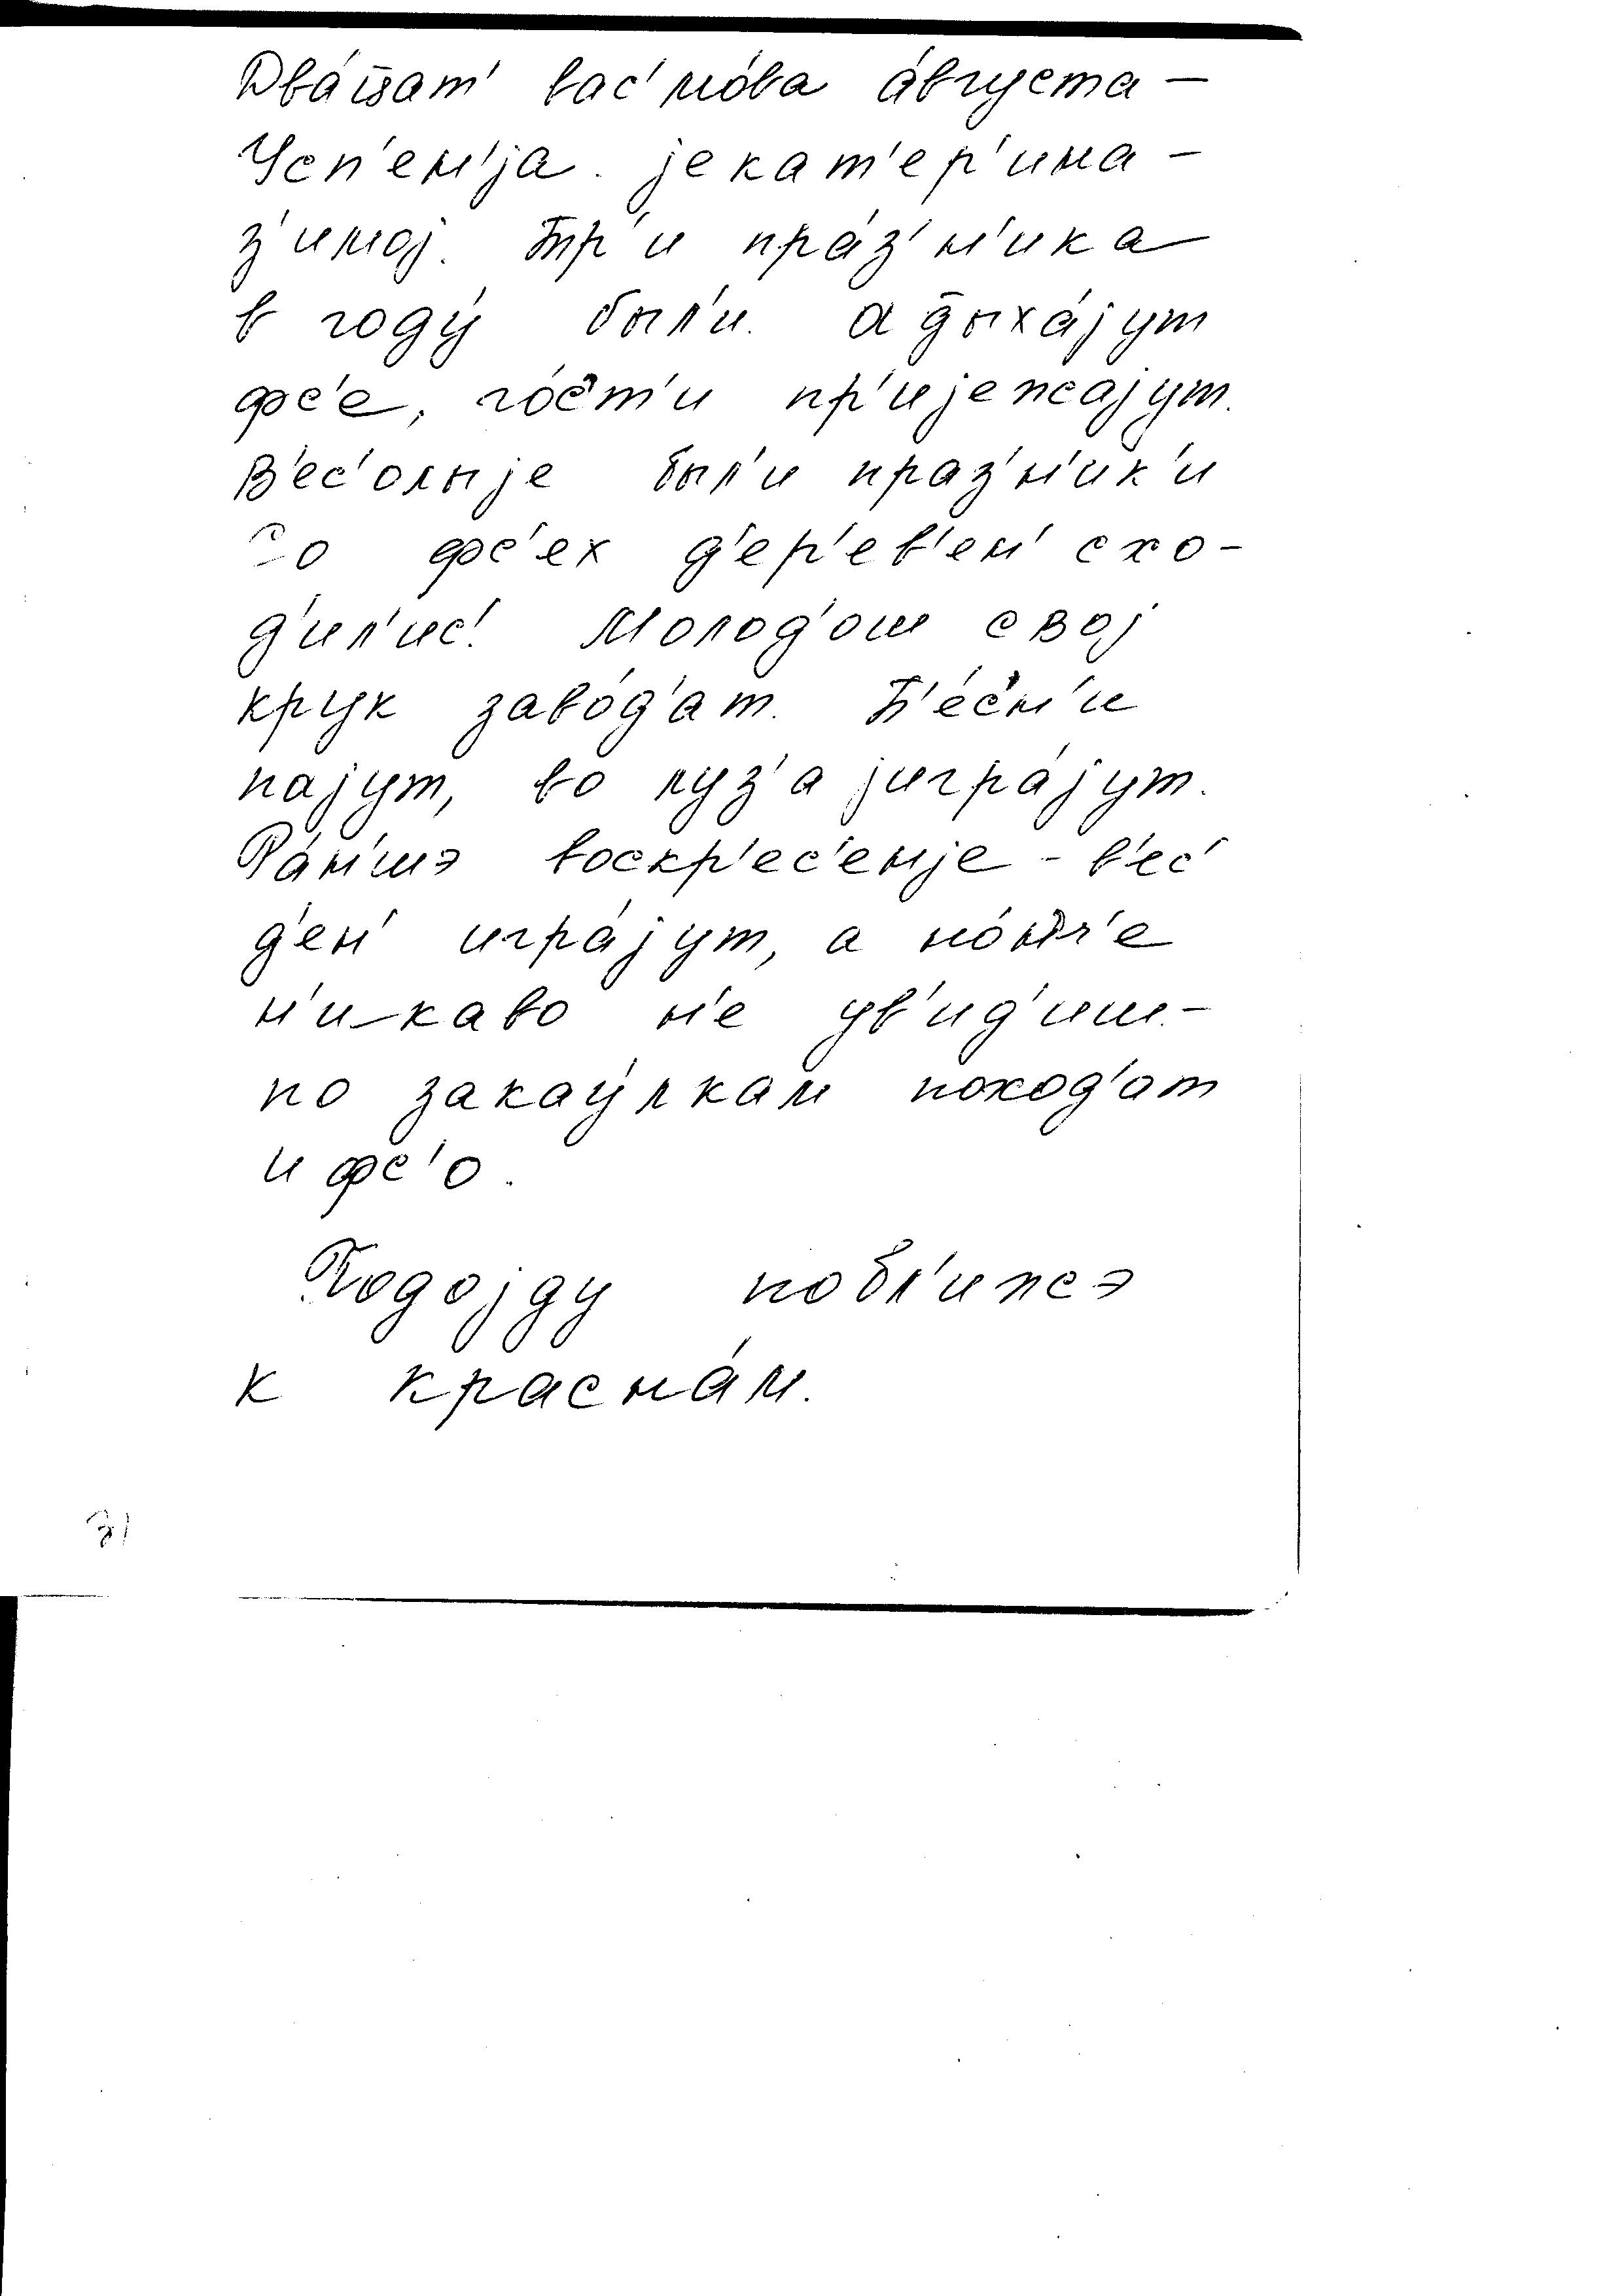 Два́ц̄ат' вас'мо́ва а́вгуста —
Усп'ен'jа. jекат'ер'ина —
з'имоj. Тр'и пра́з'н'ика
в году́ был'и. ад̄ыха́jут
фс'е, го́с'т'и пр'иjежаjут.
В'ес'олыjе был'и праз'н'ик'и
Со фс'ех д'ер'ев'ен' схо-
д'ил'ис'. Молод'ош своj
крук заво́д'ат. П'е́с'н'и
паjут, во луз'а jигра́jут.
Ра́н'шэ воскр'ес'енjе - в'ес'
д'ен' игра́jут, а но́н'ч'е
н'икаво н'е ув'ид'иш. —
по закау́лкам поход'ат
и фс'о.
Подоjду побл'ижэ
к красна́м.
31